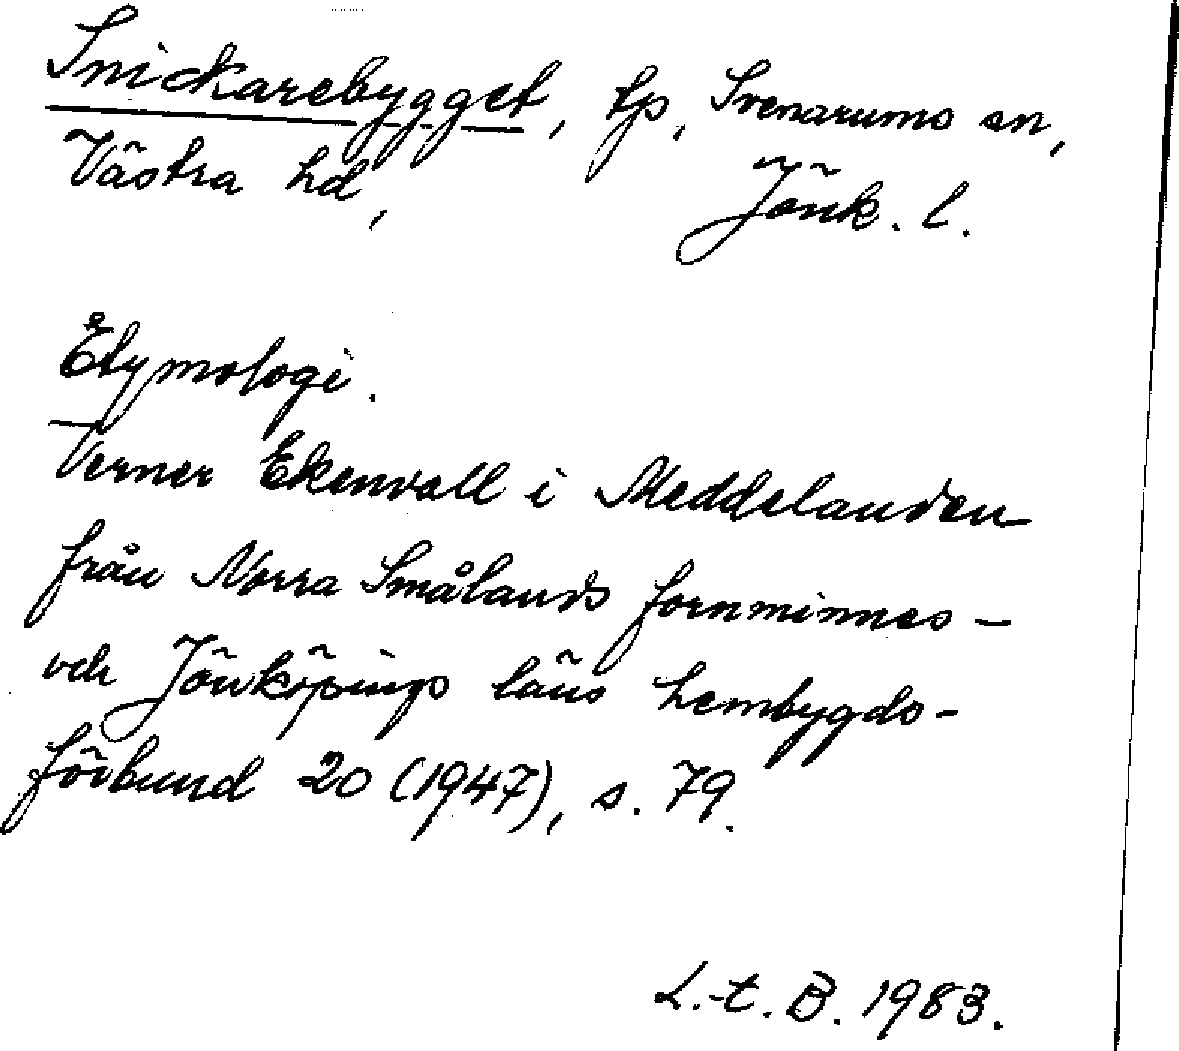 Snickarebygget, tp, Svenarums sn,
Västra hd, Jönk. l.
Etymologi.
Verner Ekenvall i Meddelanden
från Norra Smålands fornminnes-
och Jönköpings läns hembygds-
förbund 20 (1947), s. 79.
L.-t. B. 1983.